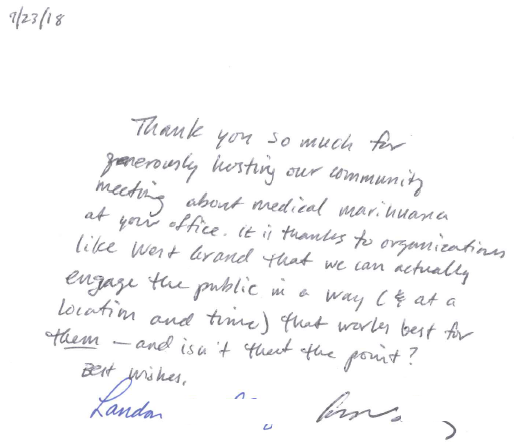 9/23/18
Thank you so much for
generously hosting our community
meeting about medical marihuana
at your office. It is thanks to organizations
like West Grand that we can actually
engage the public in a way (& at a
location and time) that works best for
them — and isn't that the point?
Best wishes,
Landon